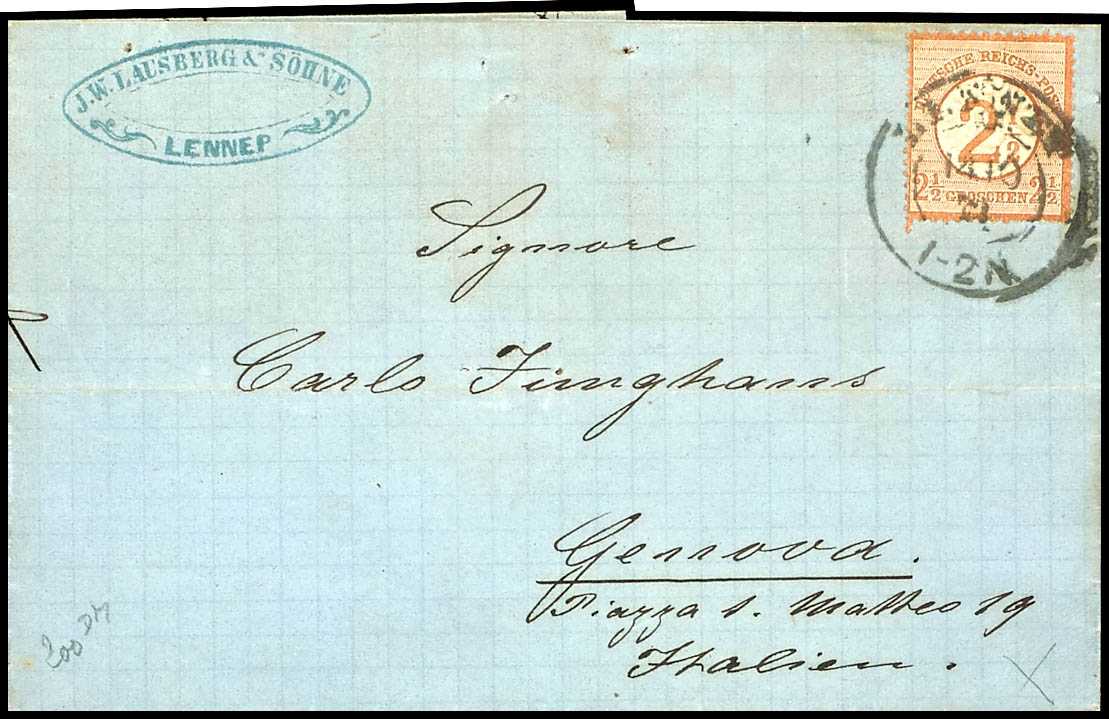 J.W. LAUSBERG & SÖHNE
LENNEP
DEUTSCHE REICHS-POST
2 1/2
2 1/2 GROSCHEN 2 1/2
1-2N
Signore
Carlo Junghans
Genova.
Piazza S. Matteo 19
Italien.
200 DM